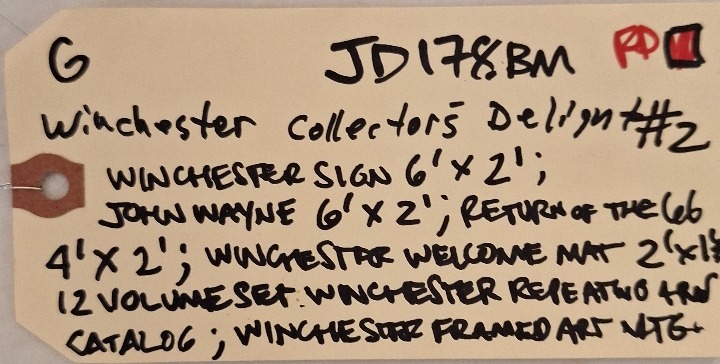 G JD178BM RD
Winchester Collectors Delight #2
WINCHESTER SIGN 6' X 2';
JOHN WAYNE 6' X 2'; RETURN OF THE 66
4' X 2'; WINCHESTER WELCOME MAT 2'X1'
12 VOLUME SET. WINCHESTER REPEATING ARM
CATALOG; WINCHESTER FRAMED ART